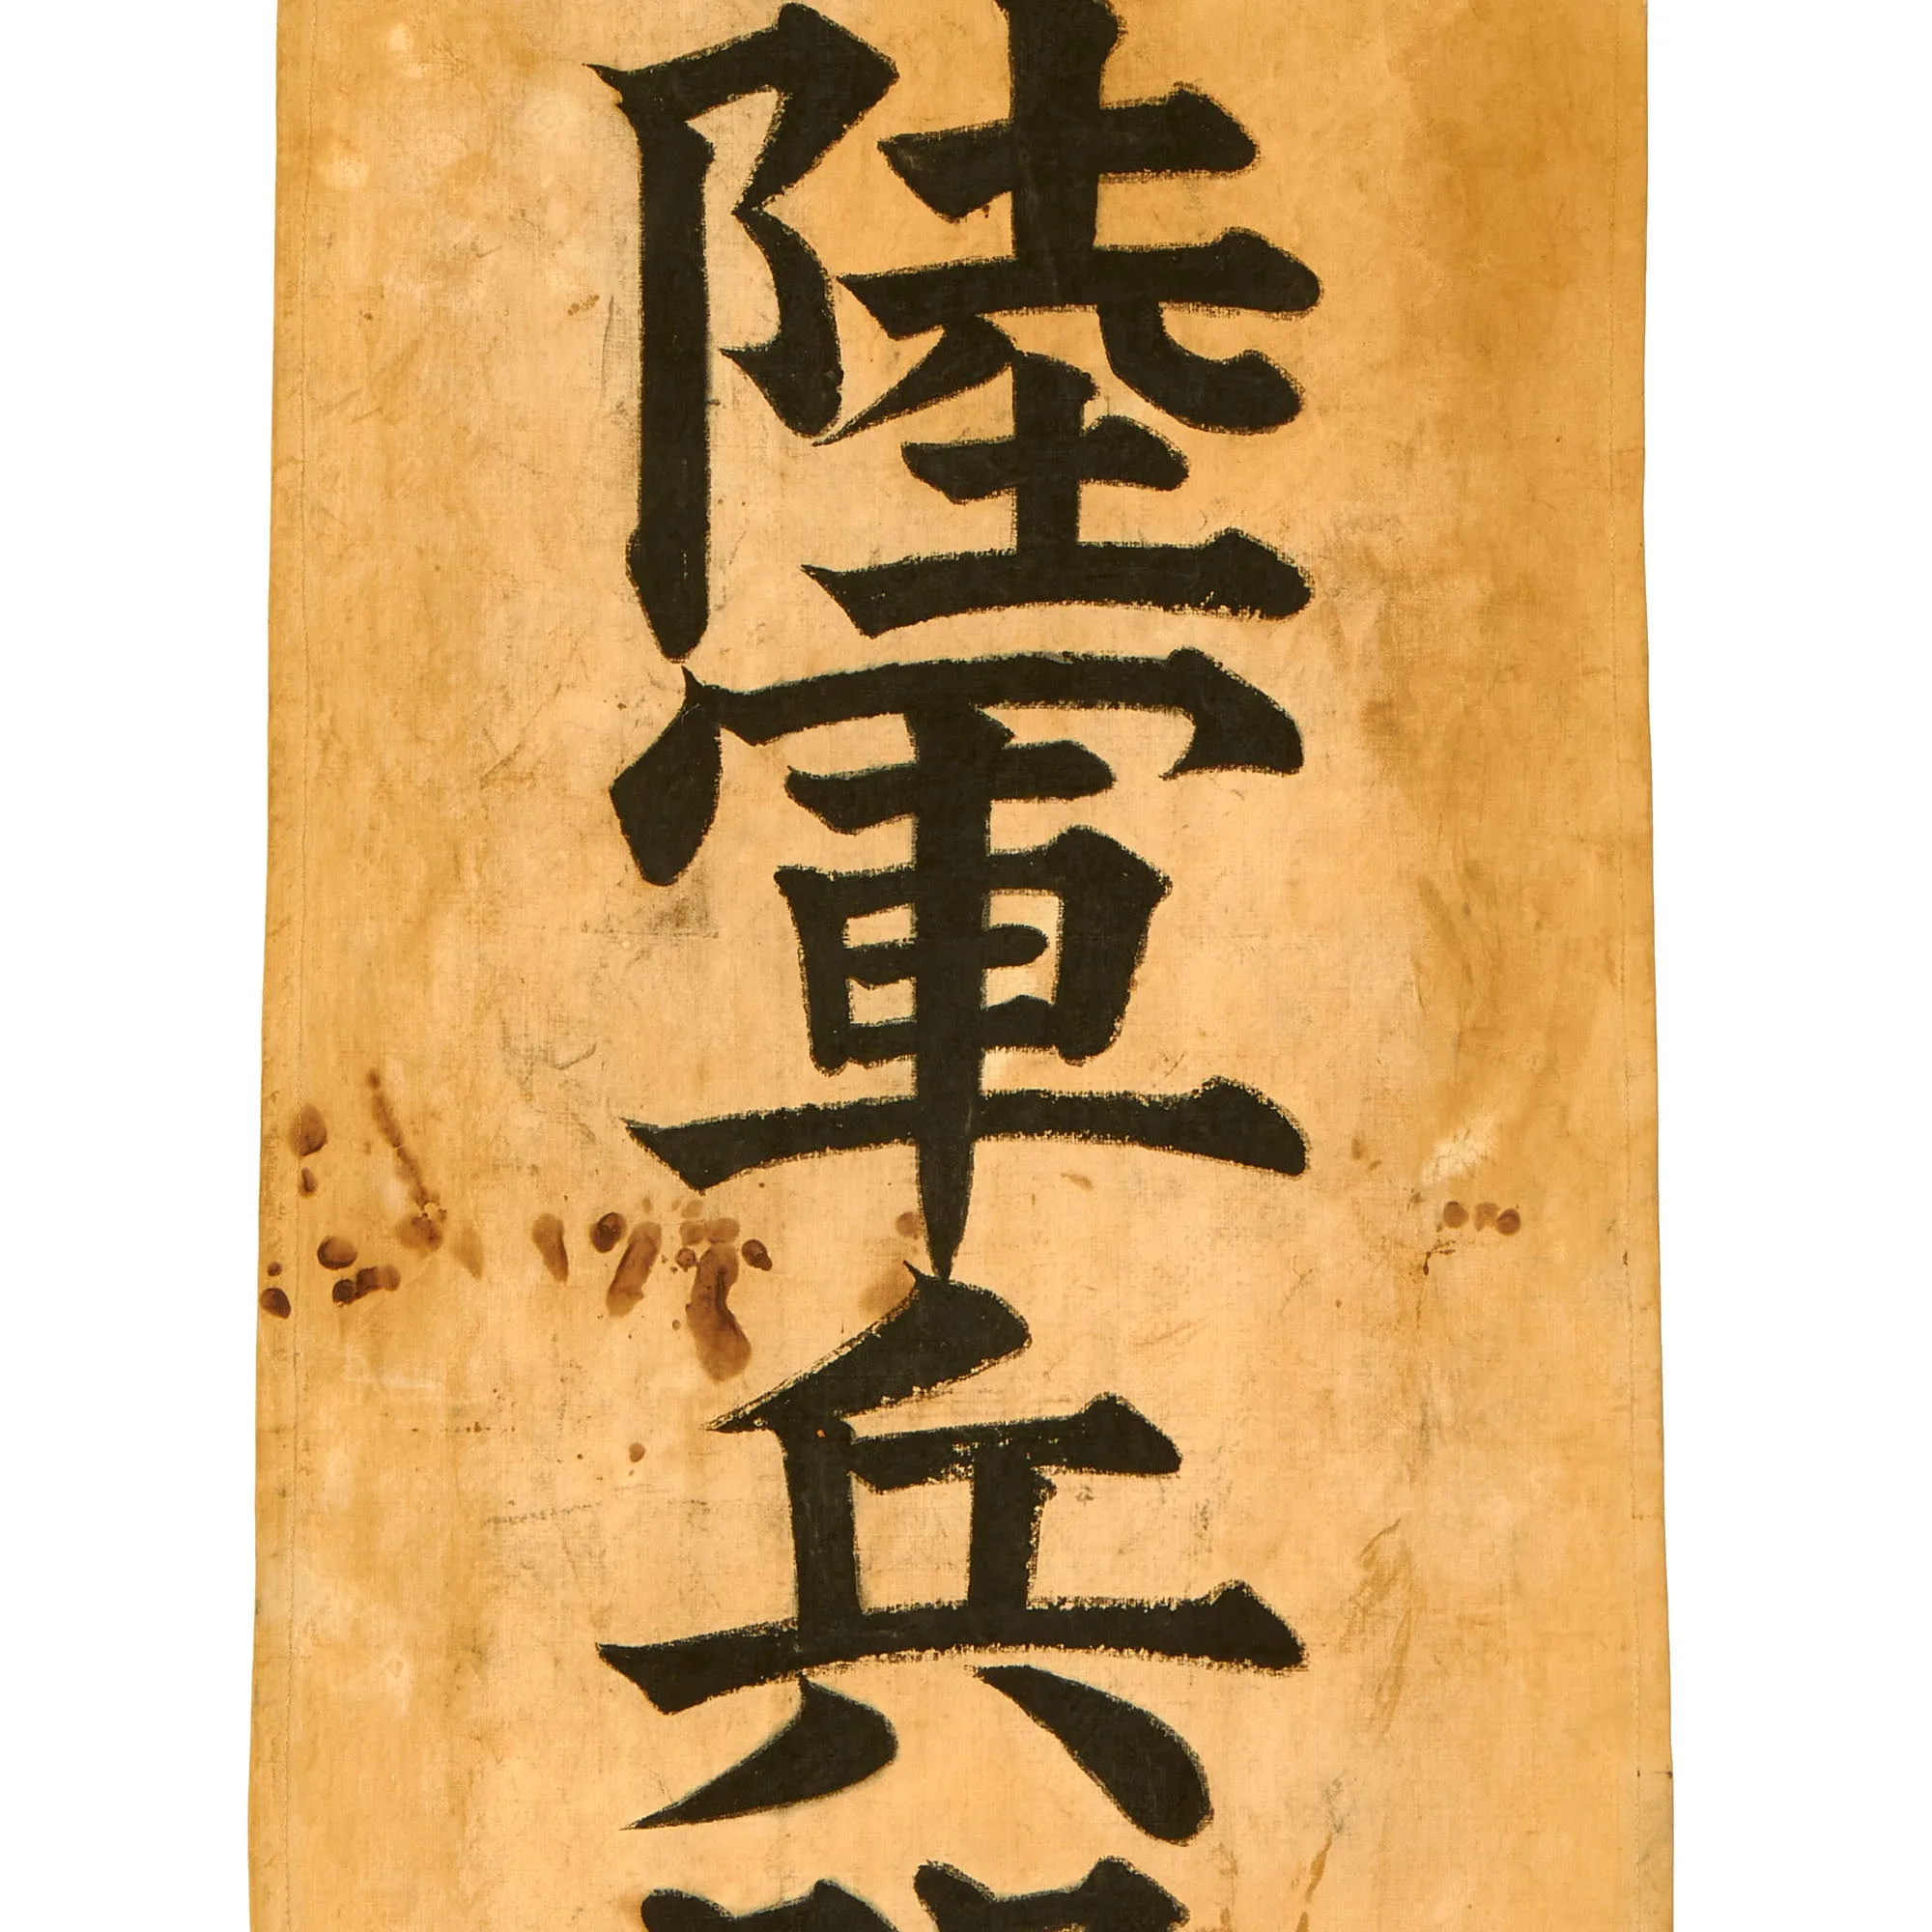 陸軍兵